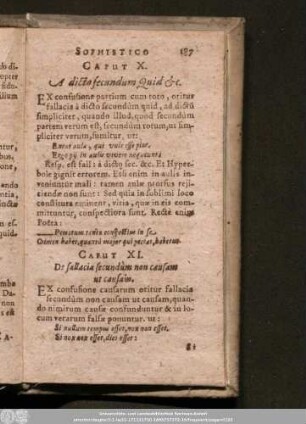 SOPHISTICO 187
CAPUT X.
A dicto secundum Quid &c.
EX confusione partium cum toto, oritur
fallacia à dicto secundùm quid, ad dictũ
simpliciter, quando illud, quod secundùm
partem verum est, secundùm totum, aut sim-
pliciter verum, sumitur, ut:
Exeat aula, qui vult esse pius.
Ergo in aulis vivere
Resp. est fall: à dicto sec. &c. Et Hyper-
bole gignit errorem. Etsi enim in aulis in-
veniuntur mali: tamen aulæ prorsus reji-
ciendæ non sunt: Sed quia in sublimi loco
constituta eminent, vitia, quæ in eis com-
mittuntur, conspectiora sunt. Rectè enim
Poëta:
conspectius in se
Crimen habet, quantò major qui peccat, habetur.
CAPUT XI.
De fallacia secundùm non causam
ut causam.
EX confusione causarum oritur fallacia
secundùm non causam ut causam, quan-
do nimirum causæ confunduntur & in lo-
cum verarum falsæ ponuntur. ut:
Si nullum tempus esset, nox non esset.
Si nox non esset, dies esset: